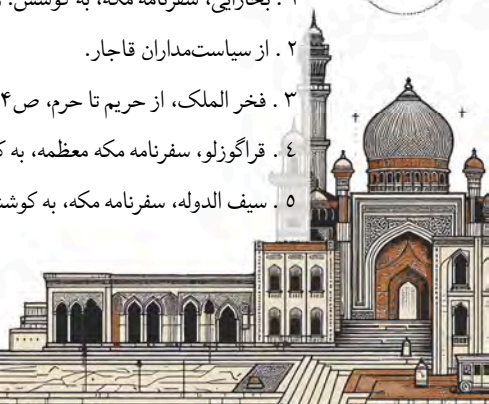 ۱ . بخارایی، سفرنامه مکه، به کوشش:
۲ . از سیاست‌مداران قاجار.
۳ . فخر الملک، از حریم تا حرم، ص۴
٤ . قراگوزلو، سفرنامه مکه معظمه، به
٥ . سیف الدوله، سفرنامه مکه، به